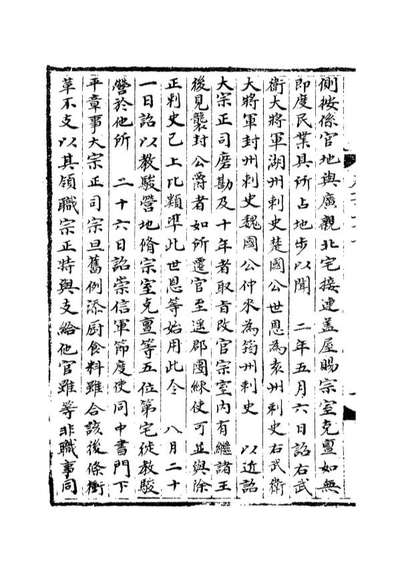 側按係官地與廣親北宅接連蓋屋賜宗室克亶如無
即度民業具所占地步以聞　二年五月六日詔右武
衛大將軍湖州刺史楚國公世恩為袁州刺史右武衛
大將軍封州刺史魏國公仲來為筠州刺史　以近詔
大宗正司磨勘及十年者取旨改官宗室內有繼諸王
後見襲封公爵者如所遷官至遥郡團練使可並與除
正刺史已上比類準此世恩等始用此令　八月二十
一日詔以教駿營地脩宗室克亶等五位第宅徙教駿
營於他所　二十六日詔崇信軍節度使同中書門下
平章事大宗正司宗旦舊例添厨食料雖合該後條衝
革不支以其領職宗正特與支給他官雖等非職事同